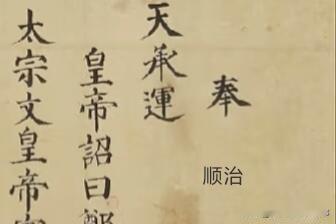 奉
天承運
皇帝詔曰
太宗文皇帝
顺治